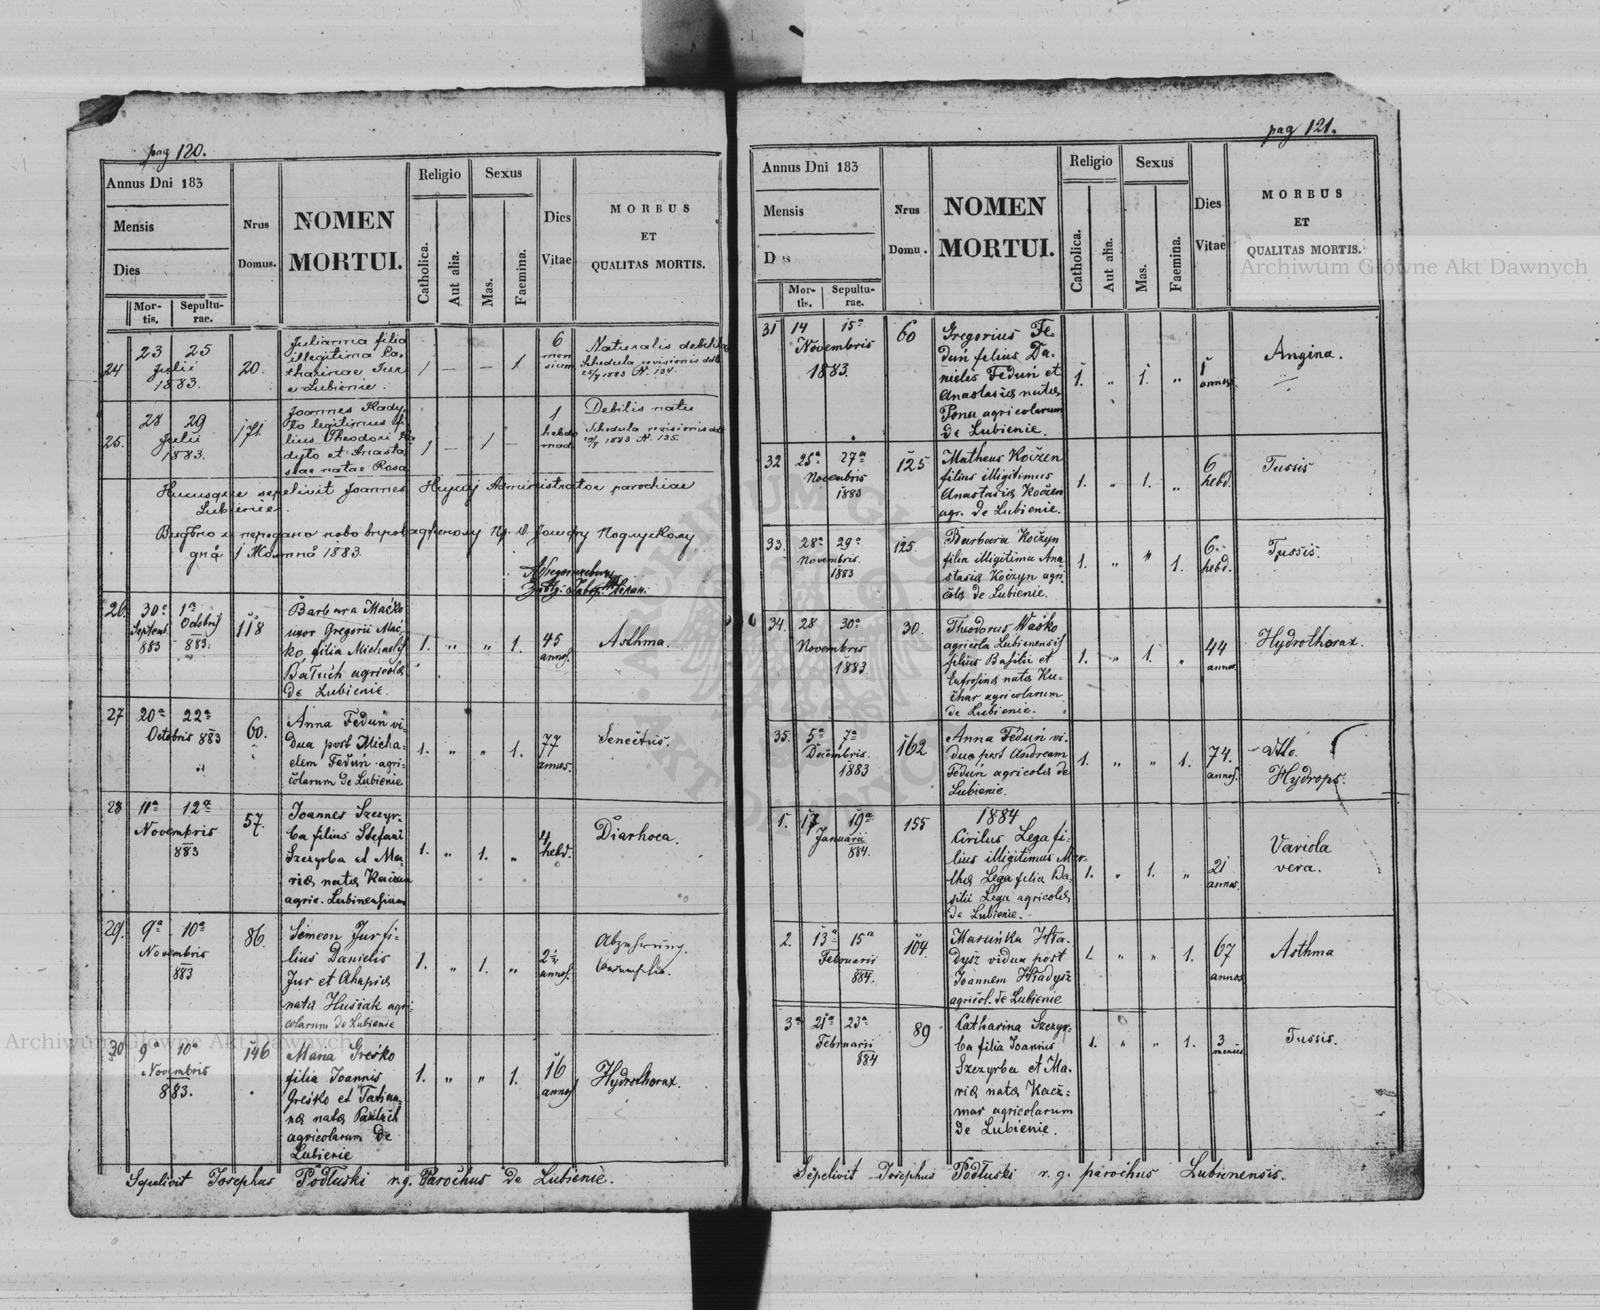 pag 120.
Annus Dni 183
Mensis
Dies
Mor-
tis.
Sepultu-
rae.
Nrus
Domus.
NOMEN
MORTUI.
Religio
Catholica.
Aut alia.
Sexus
Mas.
Faemina.
Dies
Vitae
MORBUS
ET
QUALITAS MORTIS.
24
23 25
Julii
1883.
20.
Julianna filia
illegitima Ca-
tharinae Jur
e Lubienie.
1 — — 1
6
men
sium
Naturalis debilitas
Schedula revisionis ddto
1883 N. 134.
25.
28 29
Julii
1883.
171.
Joannes Kady-
to legitimus fi-
lius Theodori Ka
dyto et Anasta
siae natae Rosa
1 — 1 —
1
hebdo
mad.
Debilis natu
Schedula revisionis ddto
1883 N. 135.
Hucusque sepelivit Joannes Hycaj Administrator parochiae
Lubienie.
1883.
26.
30ª 1ª
Septemb. Octobris
883 883.
118
Barbara Maćko
uxor Gregorii Mać
ko, filia Michaelis
Batuch agricolae
de Lubienie.
1. „ „ 1.
45
annos.
Asthma.
27
20ª 22ª
Octobris 883
60.
Anna Feduń vi-
dua post Micha-
elem Feduń agri-
colarum de Lubienie
1. „ „ 1.
77
annos.
Senectus.
28
11ª 12ª
Novembris
883
57.
Joannes Szczyr-
ba filius Stefani
Szczyrba et Ma-
riae natae Kaczma
agric. Lubinensium
1. „ 1. „
4
hebd.
Diarhoea.
29.
9ª 10ª
Novembris
883
86.
Simeon Jur fi-
lius Danielis
Jur et Ahapiae
natae Husiak agri
colarum de Lubienie
1. „ 1. „
2
annos.
Abzehrung.
Consumptio.
30
9ª 10ª
Novembris
883.
146
Maria Greśko
filia Joannis
Greśko et Tatian-
nae natae
agricolarum de
Lubienie
1. „ „ 1.
16
annos
Hydrothorax.
Sepelivit Josephus Podłuski r.g. Parochus de Lubienie.
pag 121.
Annus Dni 183
Mensis
D es
Mor-
tis.
Sepultu-
rae.
Nrus
Domu .
NOMEN
MORTUI.
Religio
Catholica.
Aut alia.
Sexus
Mas.
Faemina.
Dies
Vitae
MORBUS
ET
QUALITAS MORTIS.
31
14 15ª
Novembris
1883.
60
Gregorius Fe-
duń filius Da-
nielis Feduń et
Anastasiae natae
Pona agricolarum
de Lubienie.
1. „ 1. „
1
annos
Angina.
32
25ª 27ª
Novembris
1883
125
Matheus Koczen
filius illigitimus
Anastasiae Koczen
agr. de Lubienie.
1. „ 1. „
6
hebd.
Tussis
33.
28ª 29ª
Novembris.
1883
125.
Barbara Koczyn
filia illigitima Ana
stasiae Koczyn agri
colae de Lubienie.
1. „ „ 1.
6
hebd.
Tussis.
34.
28 30ª
Novembris
1883
30.
Theodorus Waśko
agricola Lubienensis
filius Basilii et
Eufrosinae natae Ku-
char agricolarum
de Lubienie.
1. „ 1. „
44
annos
Hydrothorax.
35.
5ª 7ª
Decembris.
1883
162
Anna Feduń vi-
dua post Andream
Feduń agricolis de
Lubienie.
1. „ „ 1.
74.
annos.
Hydrops.
1884
1.
17 19ª
Januarii
884.
155
Cirilus Lega fi-
lius illigitimus Mar-
thae Lega filia Ba-
silii Lega agricolis
de Lubienie.
1. „ 1. „
21
annos.
Variola
vera.
2.
13ª 15ª
Februarii
884.
104.
Maruńka Hła-
dysz vidua post
Joannem Hładysz
agricol. de Lubienie
1. „ „ 1.
67
annos
Asthma
3ª
21ª 23ª
Februarii
884
89
Catharina Szczyr-
ba filia Joannis
Szczyrba et Ma-
riae natae Kacz-
mar agricolarum
de Lubienie.
1. „ „ 1.
3
menses
Tussis.
Sepelivit Josephus Podłuski r. g. parochus Lubinensis.
Archiwum Główne Akt Dawnych
Archiwum Główne Akt Dawnych